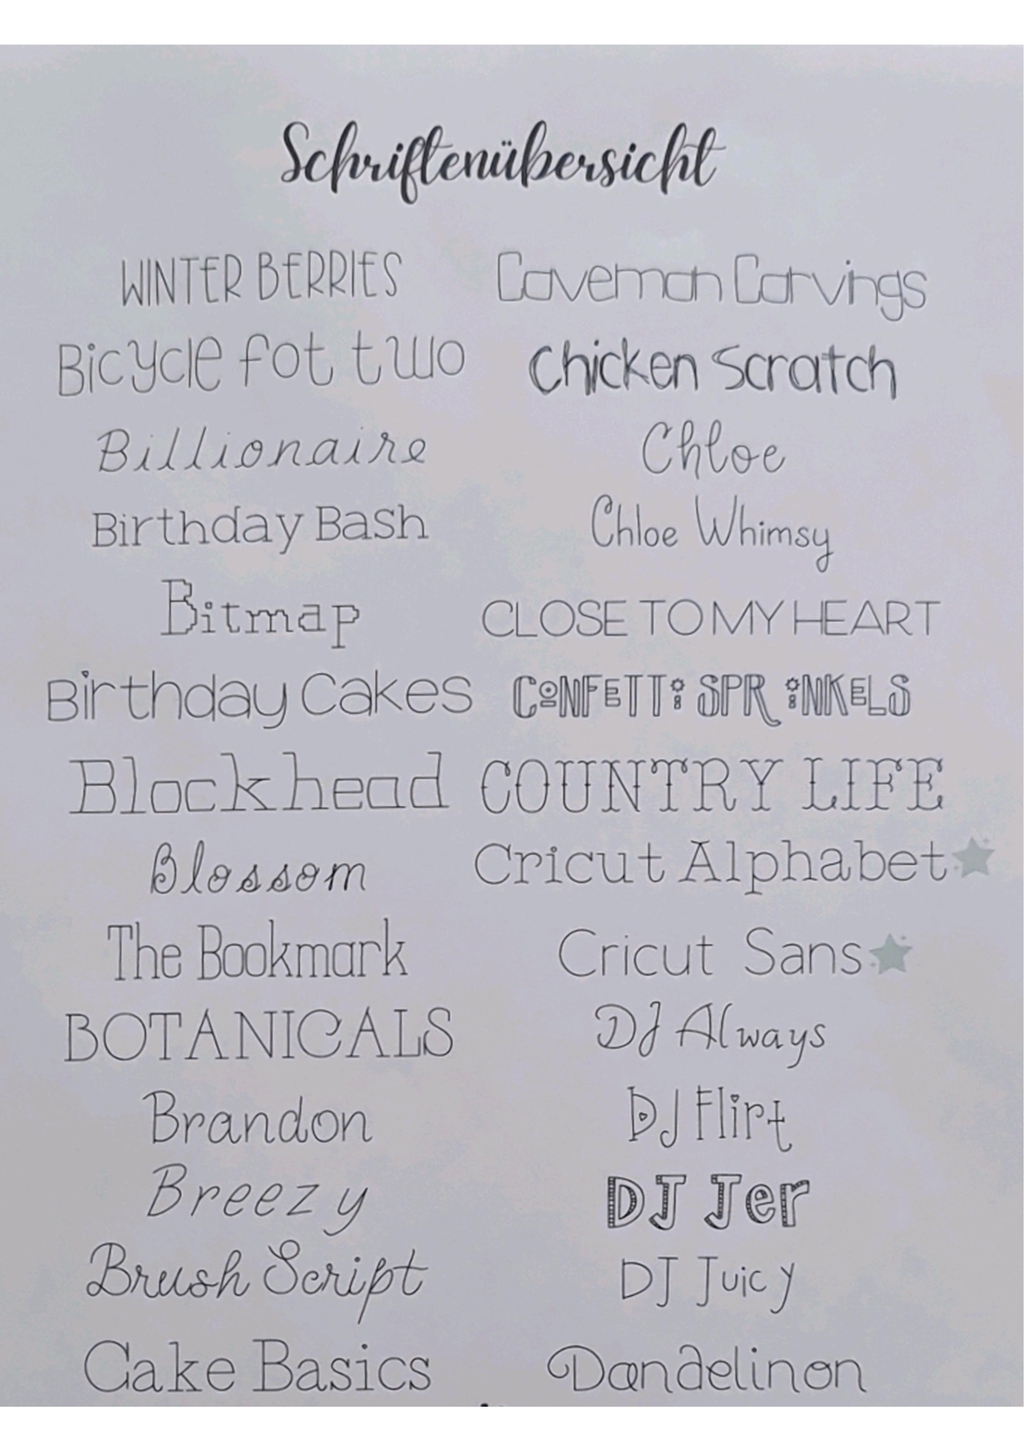 Schriftenübersicht
WINTER BERRIES
Bicycle fot two
Billionaire
Birthday Bash
Bitmap
Birthday Cakes
Blockhead
Blossom
The Bookmark
BOTANICALS
Brandon
Breezy
Brush Script
Cake Basics
Caveman Carvings
Chicken Scratch
Chloe
Chloe Whimsy
CLOSE TO MY HEART
CONFETTi SPRiNKELS
COUNTRY LIFE
Cricut Alphabet
Cricut Sans
DJ Always
DJ Flirt
DJ Jer
DJ Juicy
Dandelinon